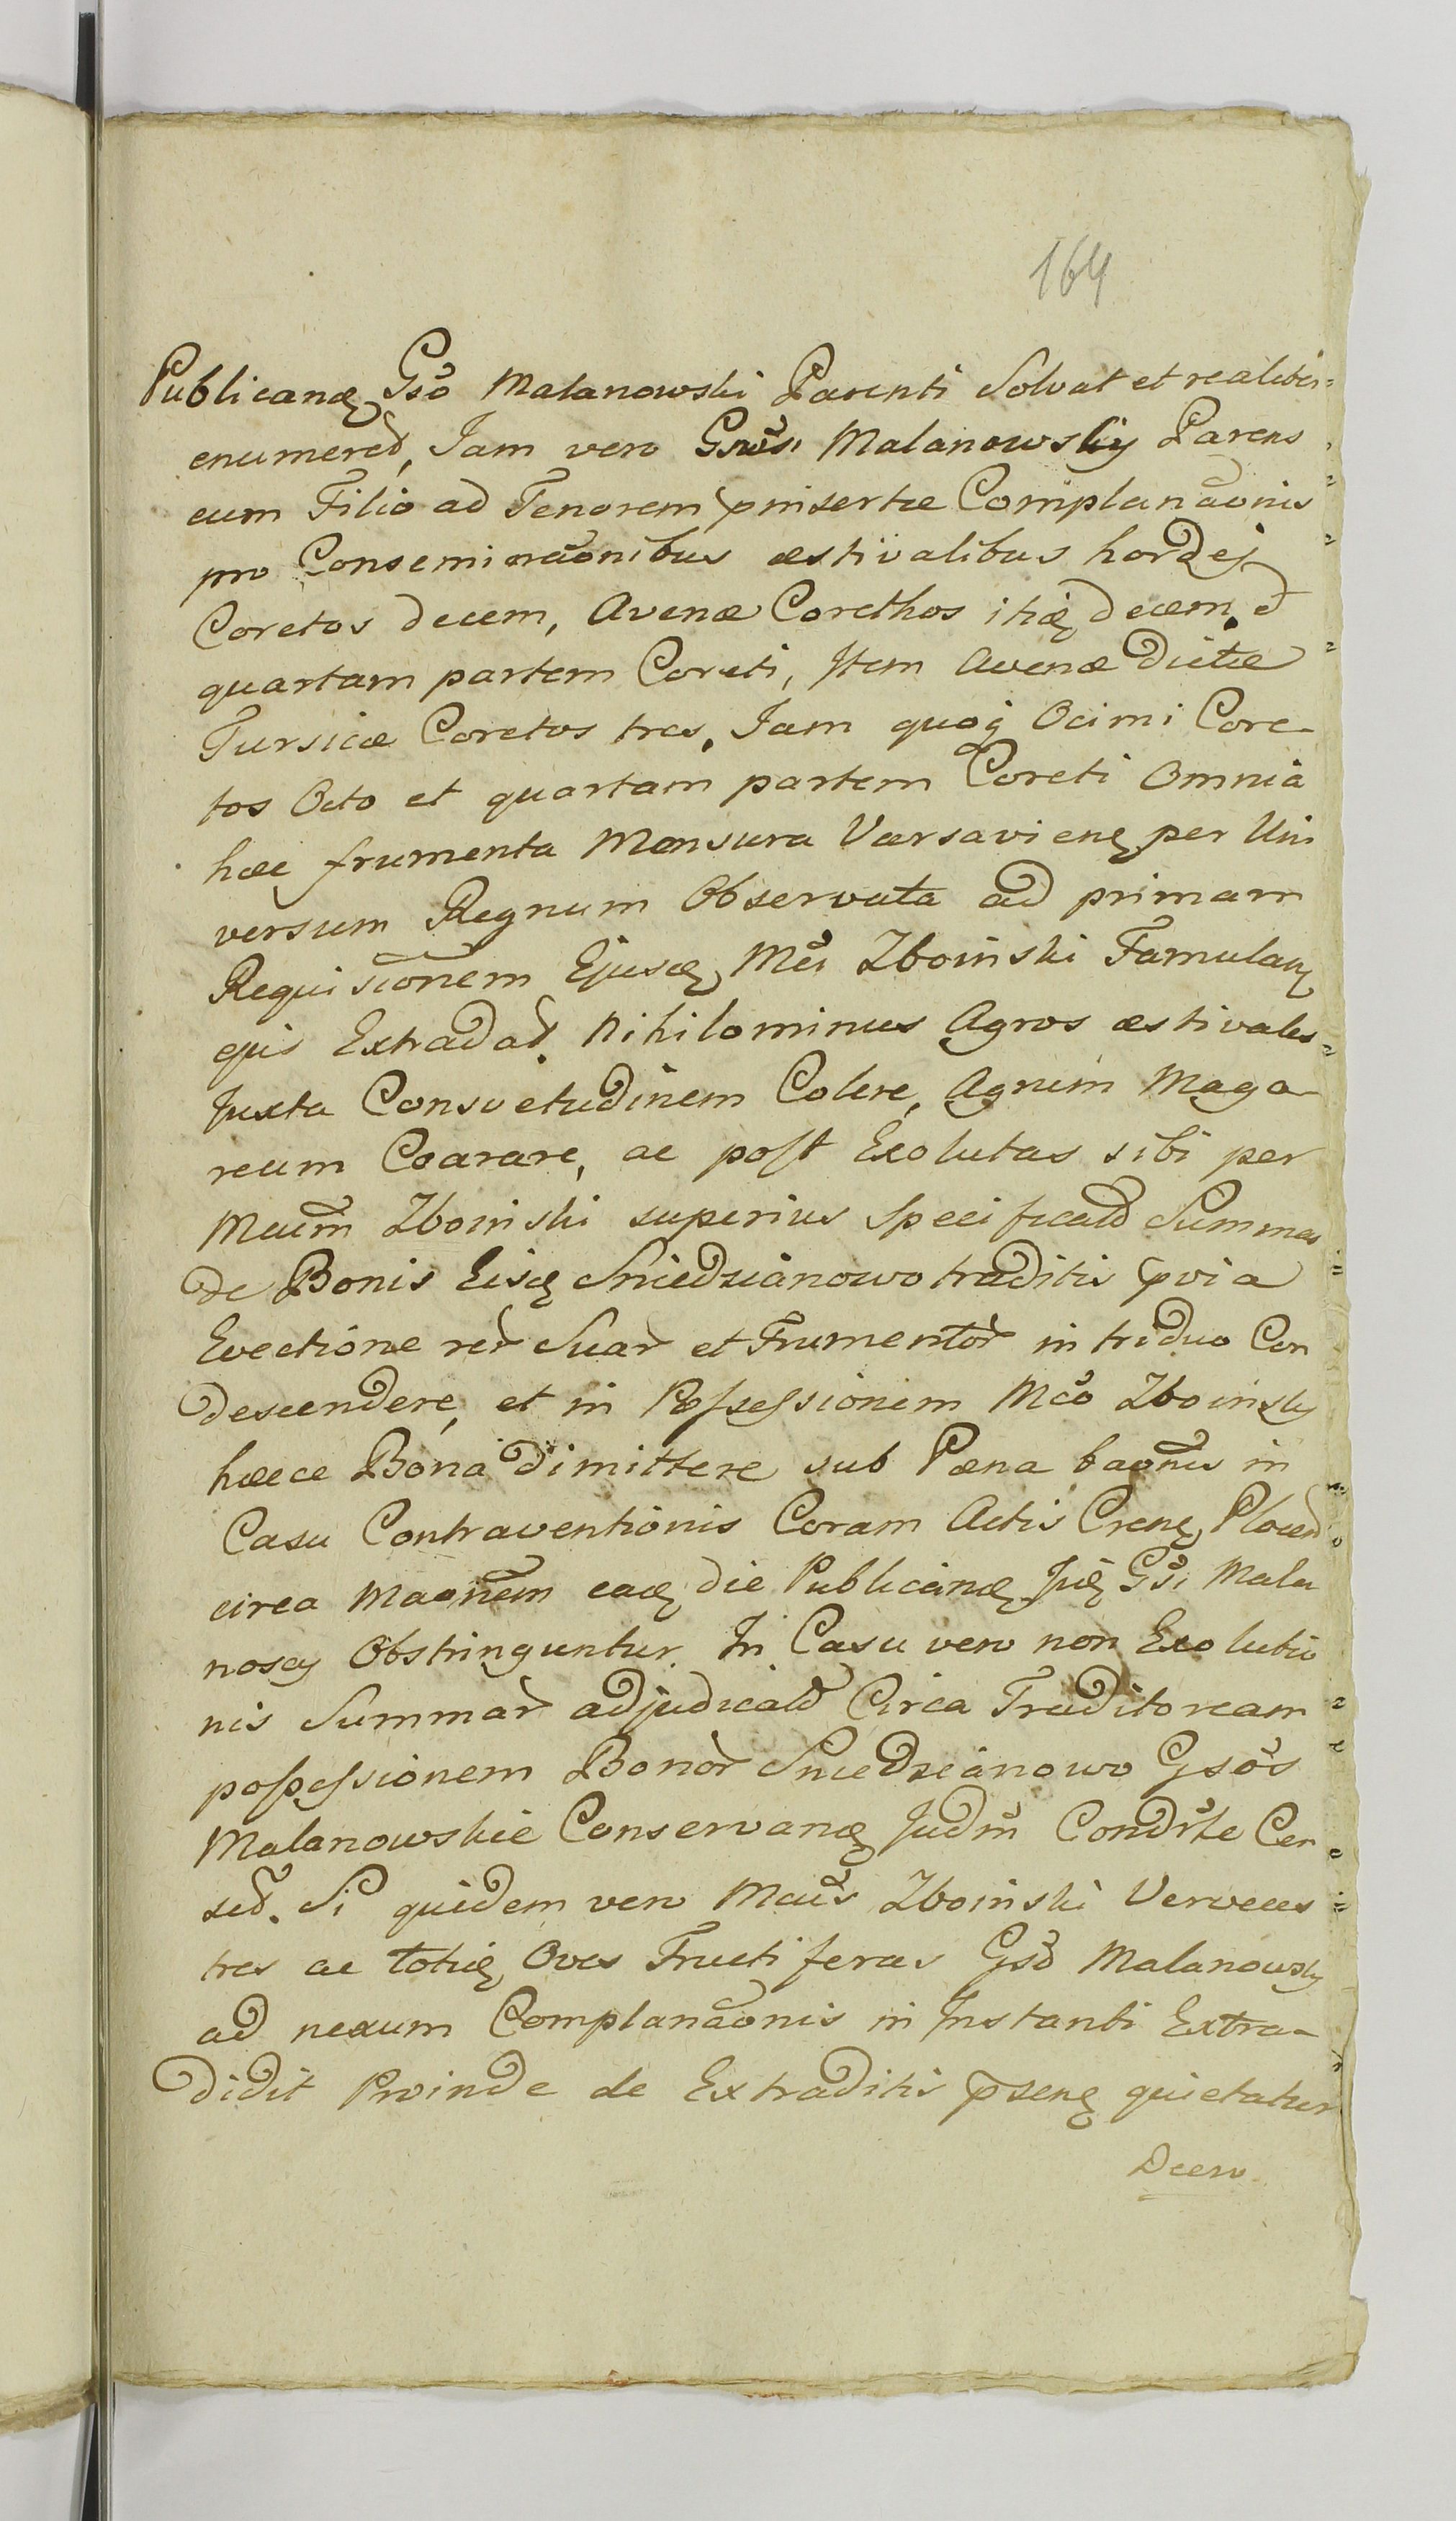 164
Publicanɇ Gso Malanowski Parenti Solvat et realiter
enumered, Jam vero Gnosi Malanowsky Parens
cum Filio ad Tenorem pinsertæ Complanaonis
pro Conseminaonibus æstivalibus hordej
Coretos decem, Avenæ Corethos itiɇ decem. et
quartam partem Coreti, Item Avenæ dictæ
Tursicæ Coretos tres. Jam quoq Ocimi Core-
tos Octo et quartam partem Coreti Omnia
hæc frumenta Mensura Varsavienɇ per Uni
versum Regnum Observata ad primam
Requisionem Ejusɇ Mci Zboinski Famulaɇ
ejus Extradat. Nihilominus Agros æstivales
Juxta Consvetudinem Colere, Agrum Maga-
reum Coarare, ac post Exolutas sibi per
Mcum Zboinski superius Specificatas Summas
de Bonis Eisɇ Sniedzianowo traditis pvia
Evectione rer Suar et Frumentor in triduo Con
descendere, et in Possessionem Mco Zboinsky
hæcce Bona dimittere sub Pæna baonis in
Casu Contraventionis Coram Actis Crenɇ Plocen
circa Maonem eaɇ die Publicanɇ Juɇ Gsi Mala
noscy Obstringuntur. In Casu vero non Exolutio
nis Summar adjudicatar Circa Traditoream
possessionem Bonor Sniedzianowo Gsos
Malanowskie Conservanɇ Judm Condste Cen
set. Si quidem vero Mcus Zboinski Verveces
tres ac totiɇ Oves Fructiferas Gso Malanowsky
ad nexum Complanaonis in Instanti Extra-
didit Proinde de Extraditis psenɇ quietatur
Decro